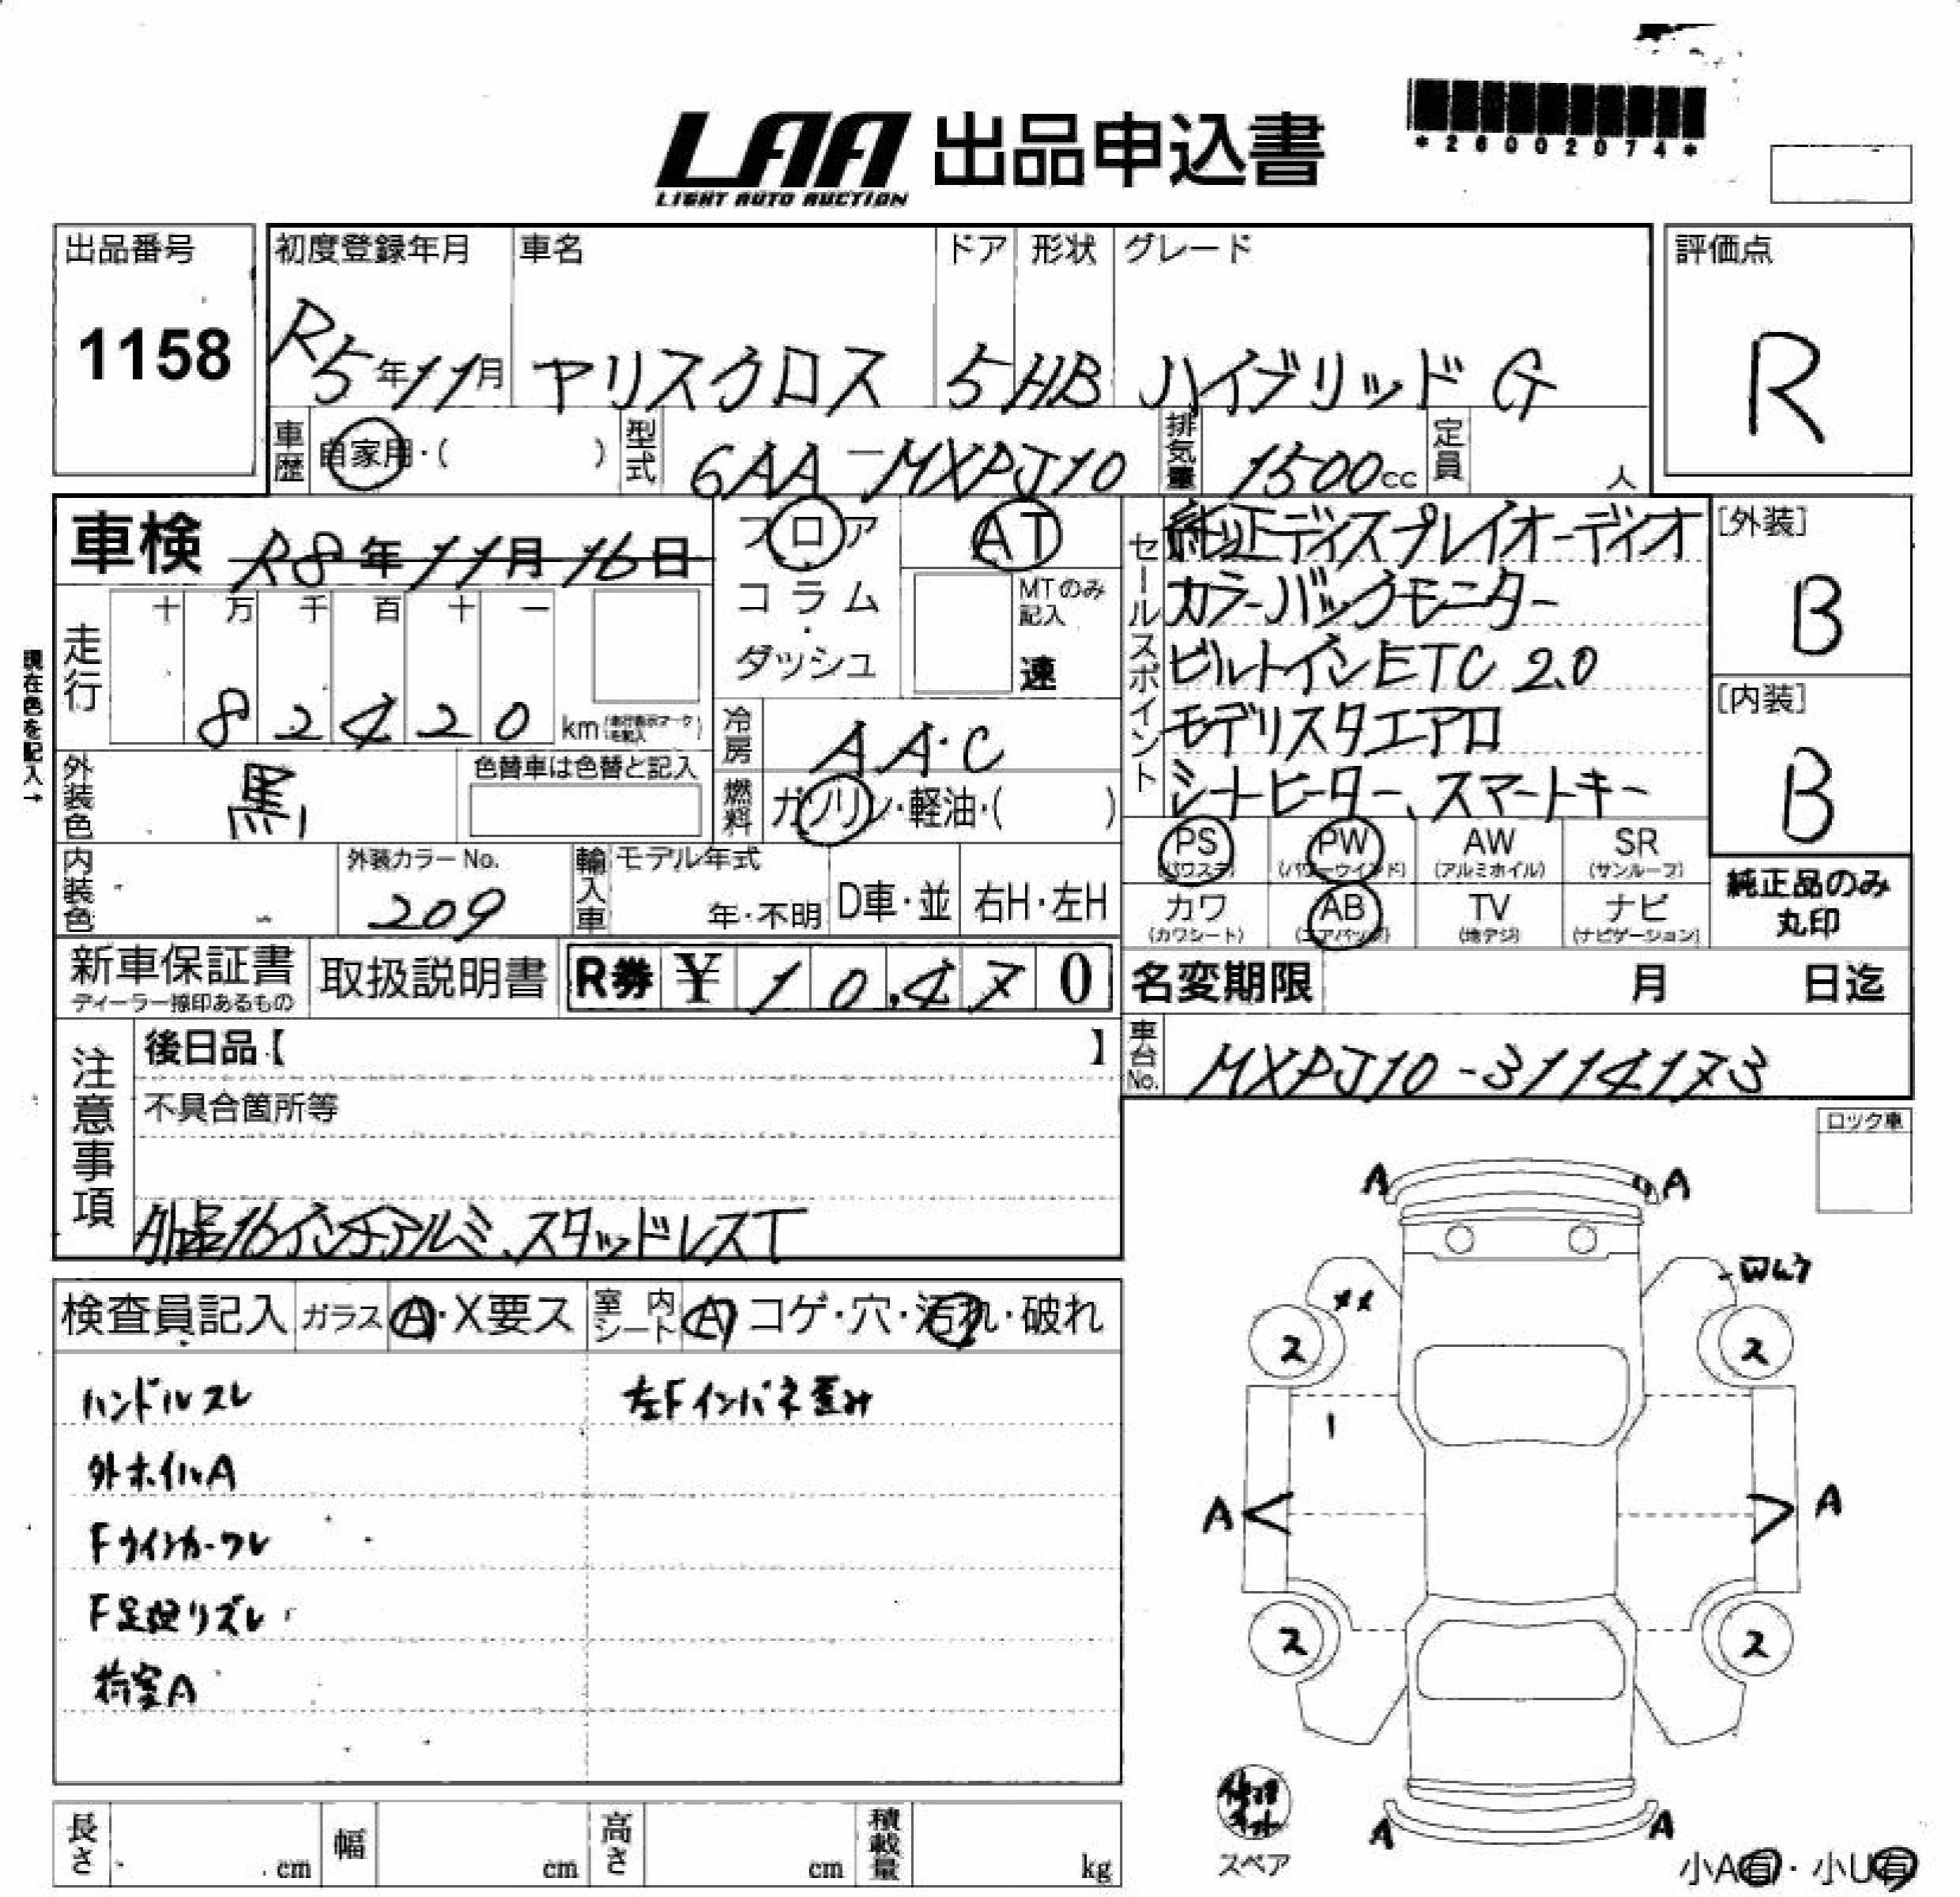 LAA 出品申込書
LIGHT AUTO AUCTION
*26002074*
出品番号
1158
初度登録年月
R5年11月
車名
ヤリスクロス
ドア
5
形状
HB
グレード
ハイブリッド G
評価点
R
車歴
自家用・( )
型式
6AA-MXPJ10
排気量
1500cc
定員
人
車検
R8年11月16日
フロア
コラム
・
ダッシュ
AT
MTのみ記入
速
セールスポイント
純正ディスプレイオーディオ
カラーバックモニター
ビルトインETC 2.0
モデリスタエアロ
シートヒーター、スマートキー
[外装]
B
[内装]
B
現在色を記入→
走行
十 万 千 百 十 一
82420 km
冷房
AA・C
外装色
黒
色替車は色替と記入
燃料
ガソリン・軽油・( )
PS
(パワステ)
PW
(パワーウインド)
AW
(アルミホイル)
SR
(サンルーフ)
カワ
(カワシート)
AB
(エアバッグ)
TV
(地デジ)
ナビ
(ナビゲーション)
純正品のみ
丸印
内装色
外装カラーNo.
209
輸入車
モデル年式
年・不明
D車・並
右H・左H
新車保証書
ディーラー捺印あるもの
取扱説明書
R券 ¥10,470
名変期限
月 日迄
車台No.
MXPJ10-3114173
注意事項
後日品【 】
不具合箇所等
外品16インチアルミ、スタッドレスT
ロック車
検査員記入
ガラス
A・X要ス
室内シート
A コゲ・穴・汚れ・破れ
ハンドルスレ
左Fインパネ歪み
外ホイルA
Fウインカーワレ
F足廻りズレ
荷室A
A
A
××
ス
ス
A
A
ス
ス
A
A
修理キット
スペア
小A有・小U有
長さ
cm
幅
cm
高さ
cm
積載量
kg